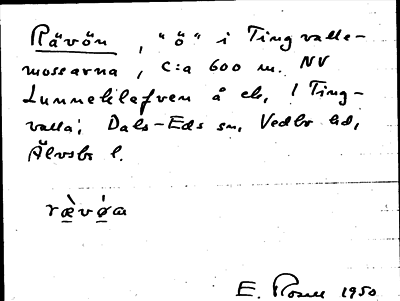 Rävön, "ö" i Tingvalle-
mossarna, c:a 600 m. NV
Lunneklefven å ek, ! Ting-
valla; Dals-Eds sn, Vedbo hd,
Älvsbo l.
ræ̀vǿa
E. 1950